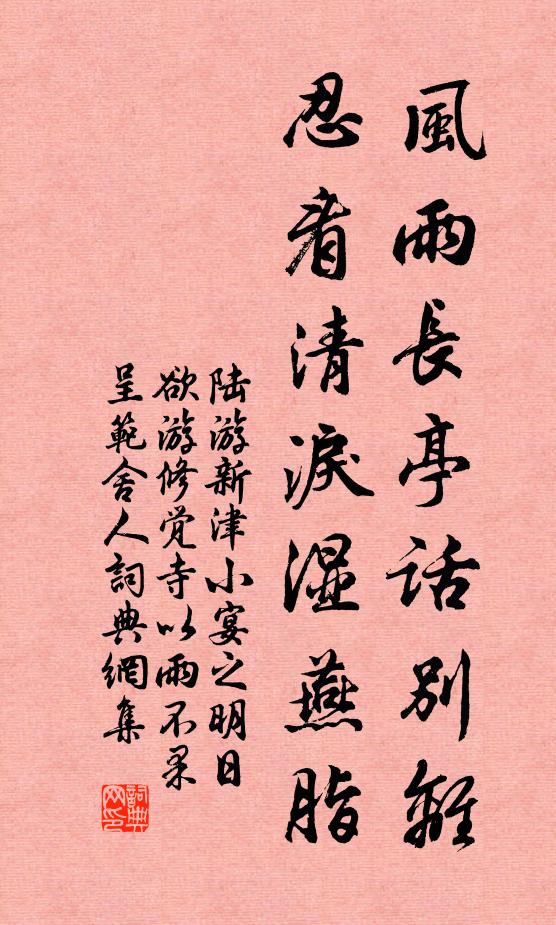 風雨長亭話別離
忍看清淚濕燕脂
陆游新津小宴之明日
欲游修觉寺以雨不果
呈範舍人詞典網集
詞典网印